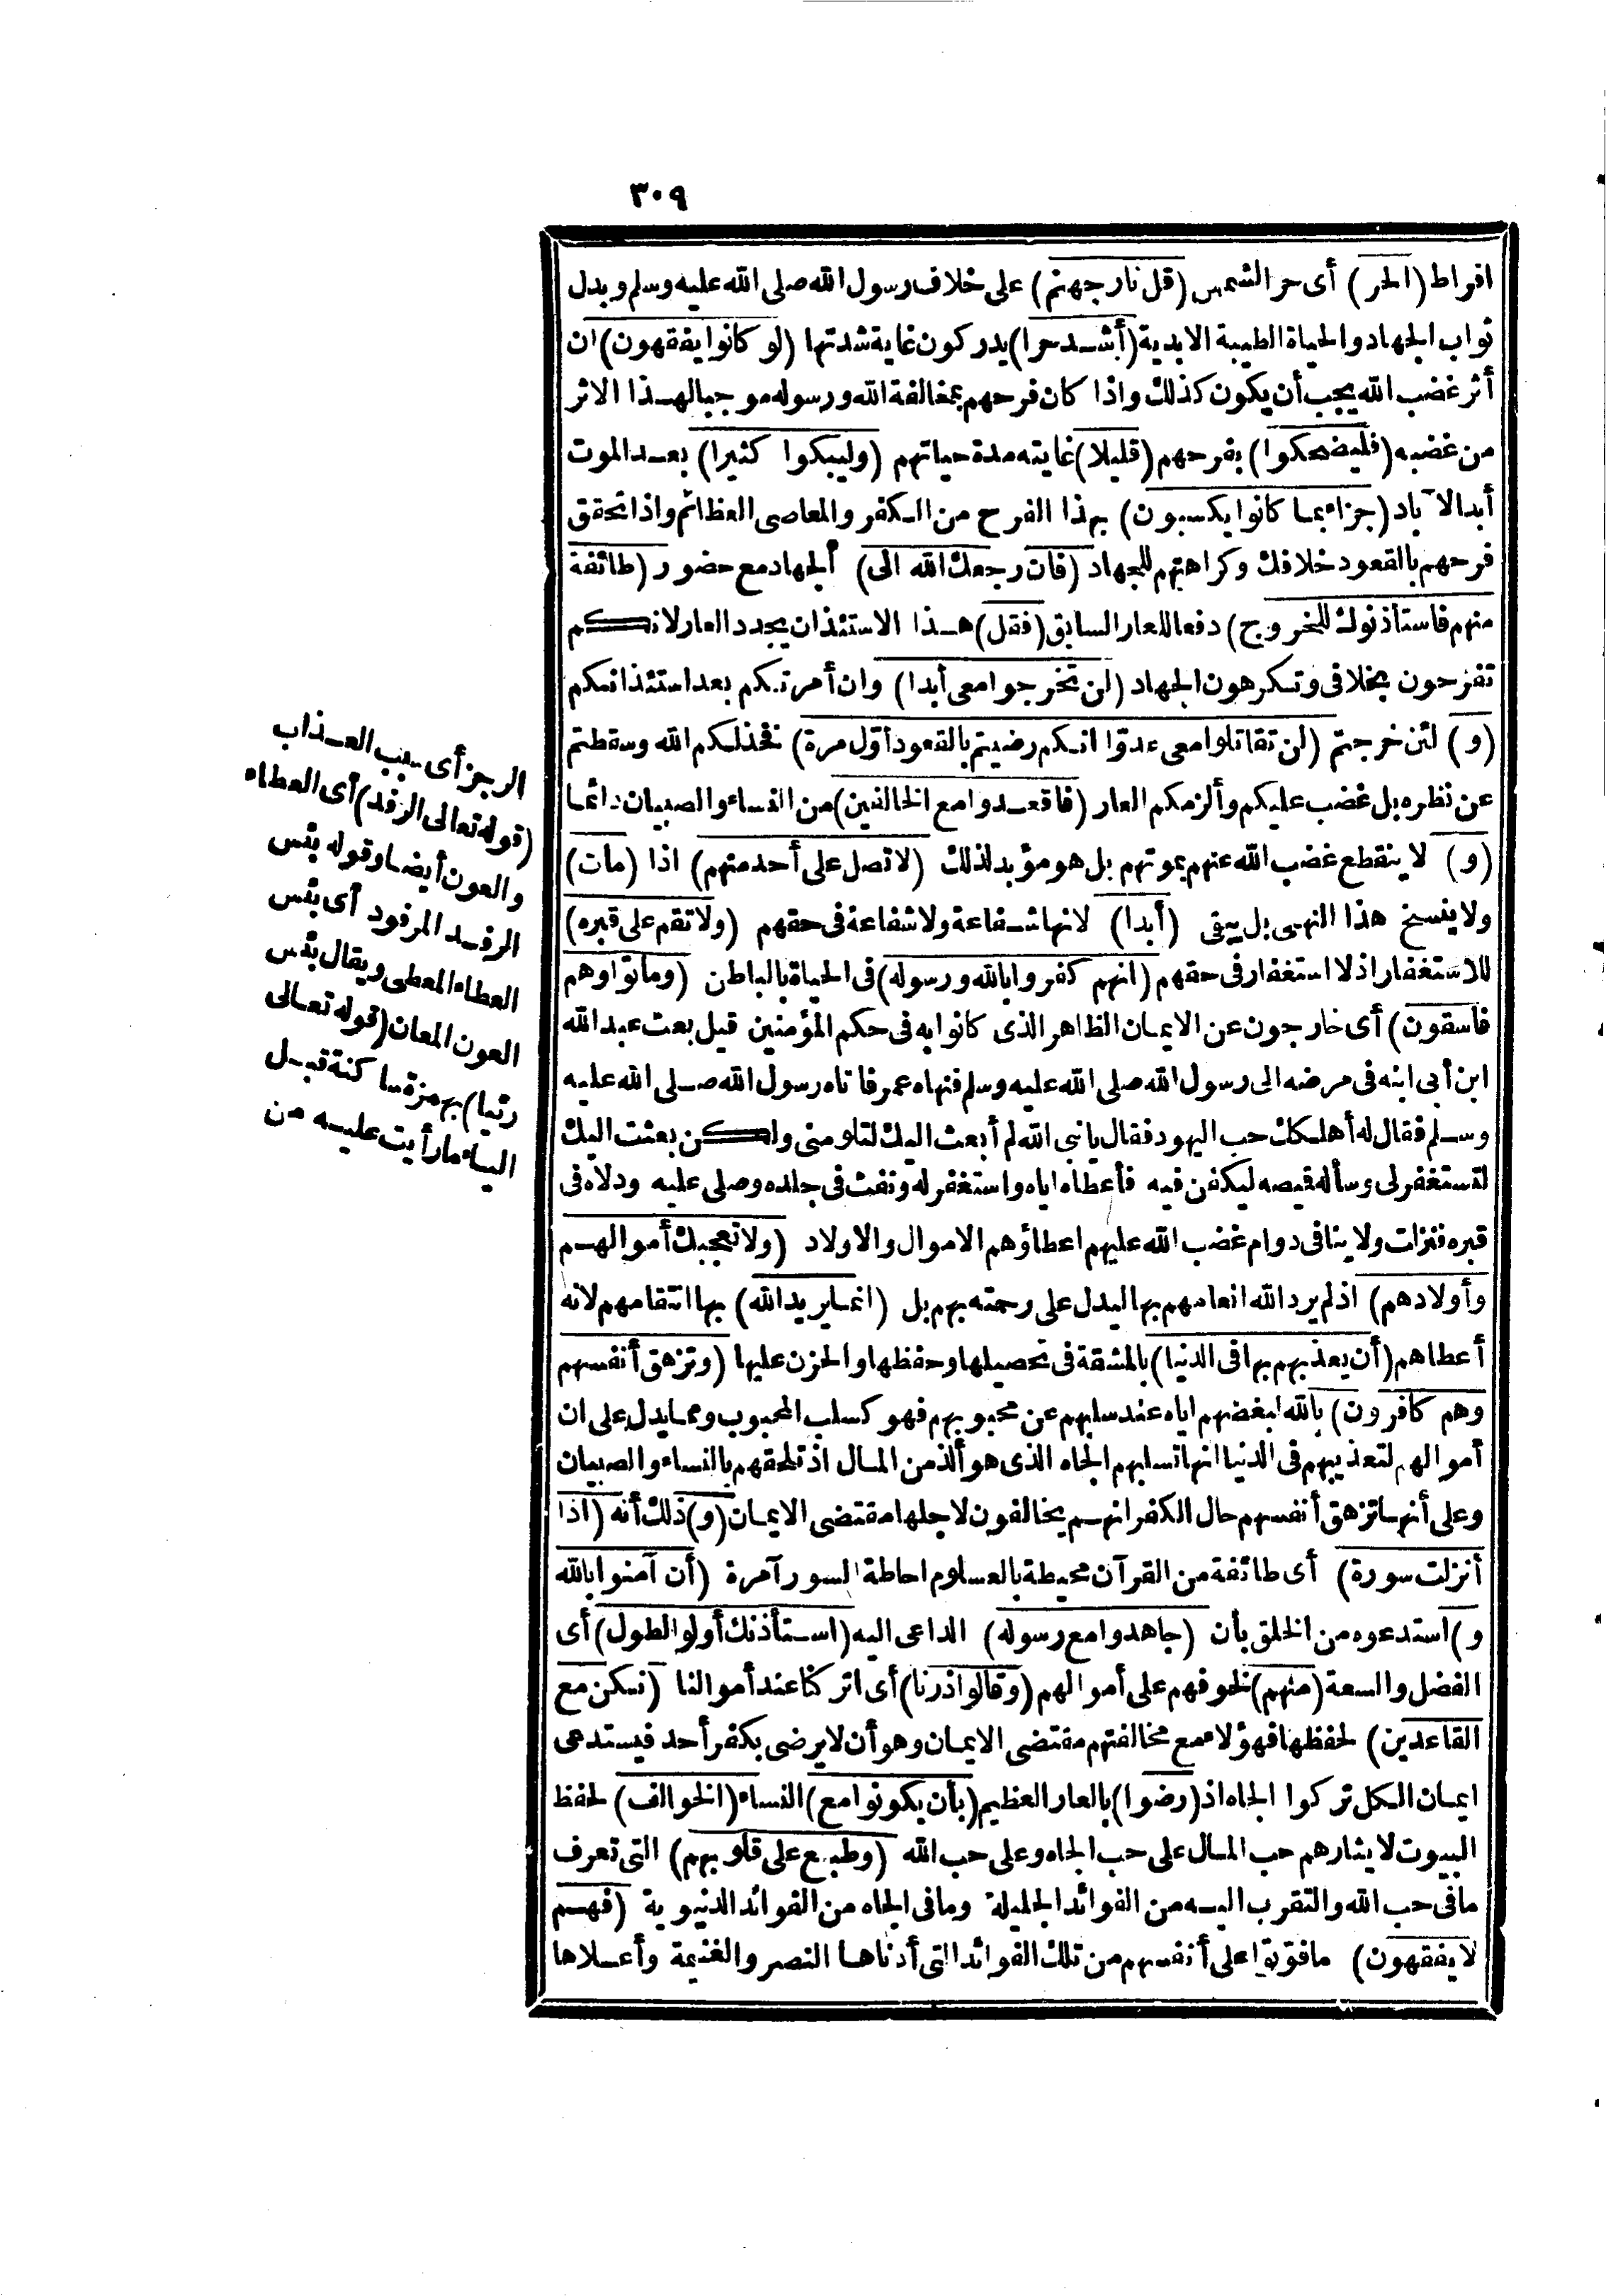 ٣٠٩
افراط (الحر) أى حر الشمس (قل نار جهنم) على خلاف رسول الله صلى الله عليه وسلم وبدل
ثواب الجهاد والحياة الطيبة الابدية (أشد حرا) يدركون غاية شدتها (لو كانوا يفقهون) ان
أثر غضب الله يجب أن يكون كذلك واذا كان فرحهم بمخالفة الله ورسوله موجبا لهذا الاثر
من غضبه (فليضحكوا) بفرحهم (قليلا) غايته مدة حياتهم (وليبكوا كثيرا) بعد الموت
أبد الآباد (جزاء بما كانوا يكسبون) بهذا الفرح من الكفر والمعاصى العظائم واذا تحقق
فرحهم بالقعود خلافك وكراهتهم للجهاد (فان رجعك الله الى) الجهاد مع حضور (طائفة
منهم فاستأذنوك للخروج) دفعا للعار السابق (فقل) هذا الاستئذان يجدد العار لانكم
تفرحون بخلافى وتكرهون الجهاد (لن تخرجوا معى أبدا) وان أمرتكم بعد استئذانكم
(و) لئن خرجتم (لن تقاتلوا معى عدوّا انكم رضيتم بالقعود أوّل مرة) فخذلكم الله وسقطتم
عن نظره بل غضب عليكم وألزمكم العار (فاقعدوا مع الخالفين) من النساء والصبيان دائما
(و) لا ينقطع غضب الله عنهم بموتهم بل هو مؤبد لذلك (لا تصل على أحد منهم) اذا (مات)
ولا ينسخ هذا النهى بل يبقى (أبدا) لانها شفاعة ولا شفاعة فى حقهم (ولا تقم على قبره)
للاستغفار اذ لا استغفار فى حقهم (انهم كفروا بالله ورسوله) فى الحياة بالباطن (وماتوا وهم
فاسقون) أى خارجون عن الايمان الظاهر الذى كانوا به فى حكم المؤمنين قيل بعث عبد الله
ابن أبى ابنه فى مرضه الى رسول الله صلى الله عليه وسلم فنهاه عمر فأتاه رسول الله صلى الله عليه
وسلم فقال له أهلكك حب اليهود فقال يا نبى الله لم أبعث اليك لتلومنى ولكن بعثت اليك
لتستغفر لى وسأله قميصه ليكفن فيه فأعطاه اياه واستغفر له ونفث فى جلده وصلى عليه ودلاه فى
قبره فنزلت ولا ينافى دوام غضب الله عليهم اعطاؤهم الاموال والاولاد (ولا تعجبك أموالهم
وأولادهم) اذ لم يرد الله انعامهم بها ليدل على رحمته بهم بل (انما يريد الله) بها انتقامهم لانه
أعطاهم (أن يعذبهم بها فى الدنيا) بالمشقة فى تحصيلها وحفظها والحزن عليها (وتزهق أنفسهم
وهم كافرون) بالله لبغضهم اياه عند سلبهم عن محبوبهم فهو كسلب المحبوب ومما يدل على ان
أموالهم لتعذيبهم فى الدنيا انها تسلبهم الجاه الذى هو ألذ من المال اذ تلحقهم بالنساء والصبيان
وعلى أنها تزهق أنفسهم حال الكفر انهم يخالفون لاجلها مقتضى الايمان (و) ذلك أنه (اذا
أنزلت سورة) أى طائفة من القرآن محيطة بالعلوم احاطة السور آمرة (أن آمنوا بالله
و) استدعوه من الخلق بأن (جاهدوا مع رسوله) الداعى اليه (استأذنك أولوا الطول) أى
الفضل والسعة (منهم) لخوفهم على أموالهم (وقالوا ذرنا) أى اتركنا عند أموالنا (نكن مع
القاعدين) لحفظها فهؤلاء مع مخالفتهم مقتضى الايمان وهو أن لا يرضى بكفر أحد فيستدعى
ايمان الكل تركوا الجاه اذ (رضوا) بالعار العظيم (بأن يكونوا مع) النساء (الخوالف) لحفظ
البيوت لايثارهم حب المال على حب الجاه وعلى حب الله (وطبع على قلوبهم) التى تعرف
ما فى حب الله والتقرب اليه من الفوائد الجليلة وما فى الجاه من الفوائد الدنيوية (فهم
لا يفقهون) ما فوّتوا على أنفسهم من تلك الفوائد التى أدناها النصر والغنيمة وأعلاها
الرجز أى سبب العذاب
(قوله تعالى الرفد) أى العطاء
والعون أيضا وقوله بئس
الرفد المرفود أى بئس
العطاء المعطى ويقال بئس
العون المعان (قوله تعالى
رئيا) بهمزة ساكنة قبل
الياء ما رأيت عليه من